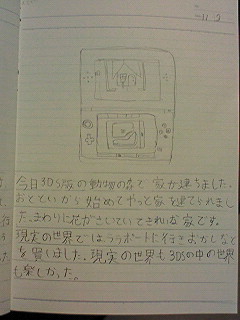 今日3DS版の動物の森で家が建ちました.
おとといから始めてやっと家を建てられまし
た.まわりに花がさいていてきれいな家です.
現実の世界ではララポートに行きおかしなど
を買いました.現実の世界も3DSの中の世界
も楽しかった。